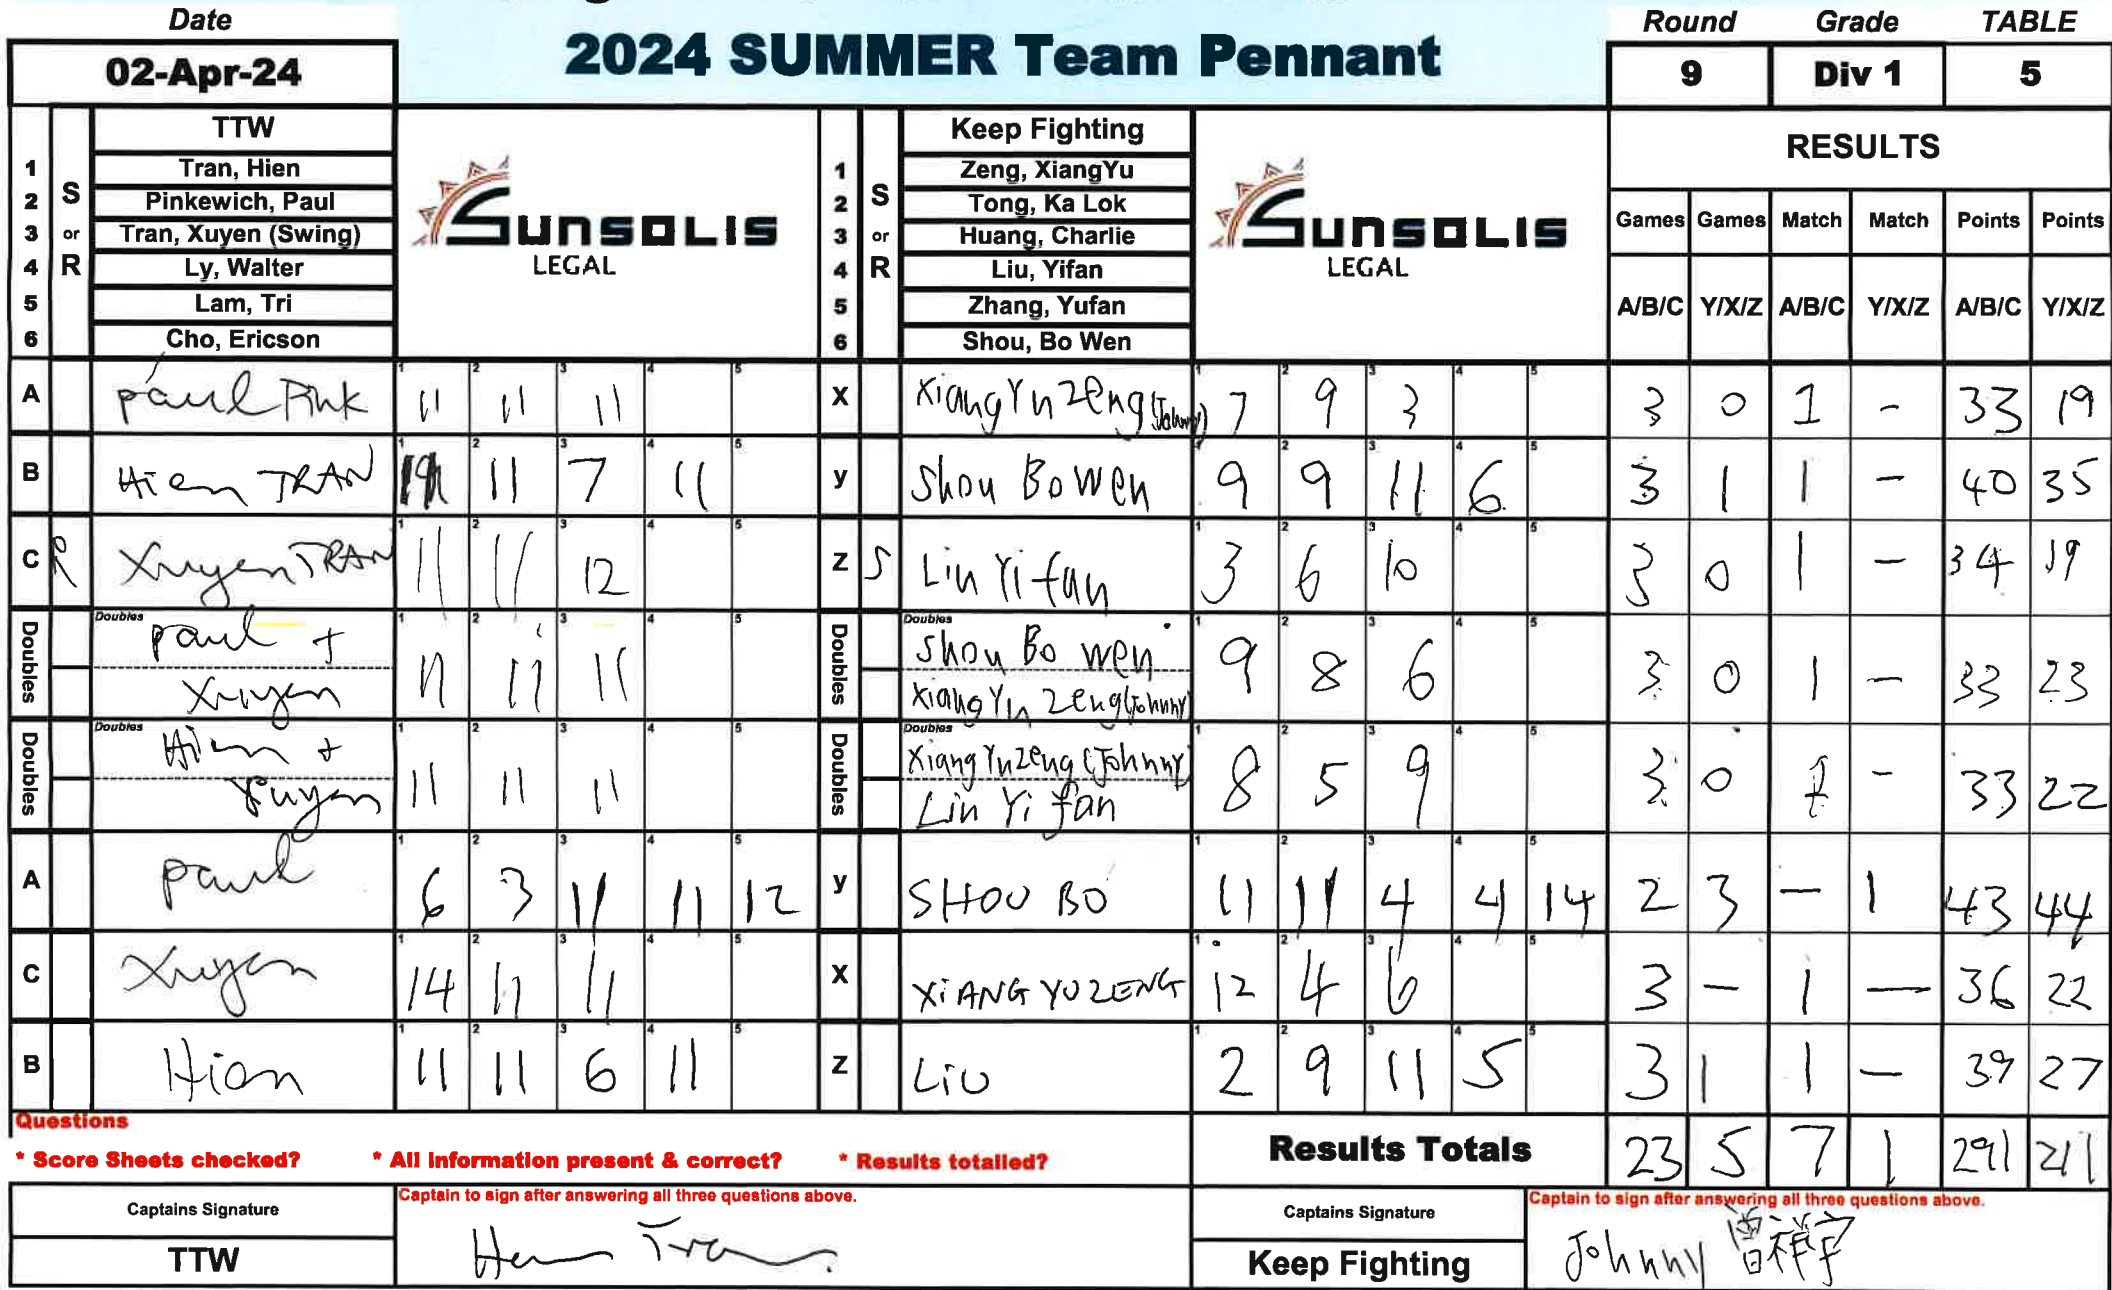 Date
2024 SUMMER Team Pennant
Round Grade TABLE
02-Apr-24
9 Div 1 5
TTW
Keep Fighting
RESULTS
1 Tran, Hien
2 Pinkewich, Paul
3 Tran, Xuyen (Swing)
4 Ly, Walter
5 Lam, Tri
6 Cho, Ericson
S or R
SUNSOLIS
LEGAL
1 Zeng, XiangYu
2 Tong, Ka Lok
3 Huang, Charlie
4 Liu, Yifan
5 Zhang, Yufan
6 Shou, Bo Wen
S or R
SUNSOLIS
LEGAL
Games Games Match Match Points Points
A/B/C Y/X/Z A/B/C Y/X/Z A/B/C Y/X/Z
A Paul Pink 11 11 11 X XiangYu Zeng (Johnny) 7 9 3 3 0 1 - 33 19
B Hien TRAN 11 11 7 11 y Shou Bo Wen 9 9 11 6 3 1 1 - 40 35
C R Xuyen TRAN 11 11 12 Z S Liu Yi fan 3 6 10 3 0 1 - 34 19
Doubles Doubles paul + Xuyen 11 11 11 Doubles Doubles Shou Bo wen XiangYu Zeng (Johnny) 9 8 6 3 0 1 - 33 23
Doubles Doubles Hien + Xuyen 11 11 11 Doubles Doubles XiangYu Zeng (Johnny) Liu Yi fan 8 5 9 3 0 1 - 33 22
A paul 6 3 11 11 12 y SHOU BO 11 11 4 4 14 2 3 - 1 43 44
C Xuyen 14 11 11 X XiANG YU ZENG 12 4 6 3 - 1 - 36 22
B Hien 11 11 6 11 Z Liu 2 9 11 5 3 1 1 - 39 27
Questions
* Score Sheets checked? * All Information present & correct? * Results totalled?
Results Totals 23 5 7 1 291 211
Captains Signature
Captain to sign after answering all three questions above.
TTW
Hien Tran
Captains Signature
Captain to sign after answering all three questions above.
Keep Fighting
Johnny 曾祥宇